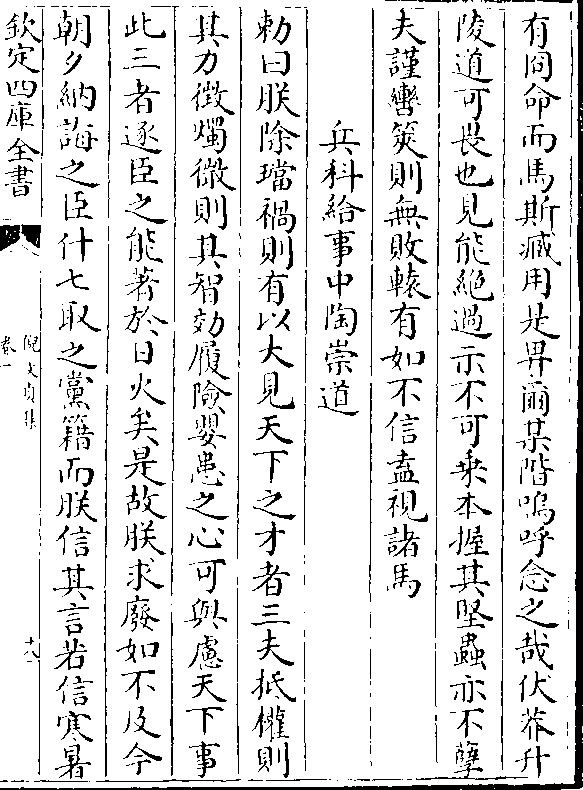 有冏命而馬斯臧用是畀爾某階嗚呼念之哉伏莽升
陵道可畏也見能絶過示不可乗本握其堅蟲亦不孽
夫謹轡筴則無敗轅有如不信盍視諸馬
兵科給事中陶崇道
勅曰朕除璫禍則有以大見天下之才者三夫抵權則
其力徴燭微則其智効履險嬰患之心可與慮天下事
此三者逐臣之能著於日火矣是故朕求廢如不及今
朝夕納誨之臣什七取之黨籍而朕信其言若信寒暑
欽定四庫全書
倪文貞集
卷一
十八